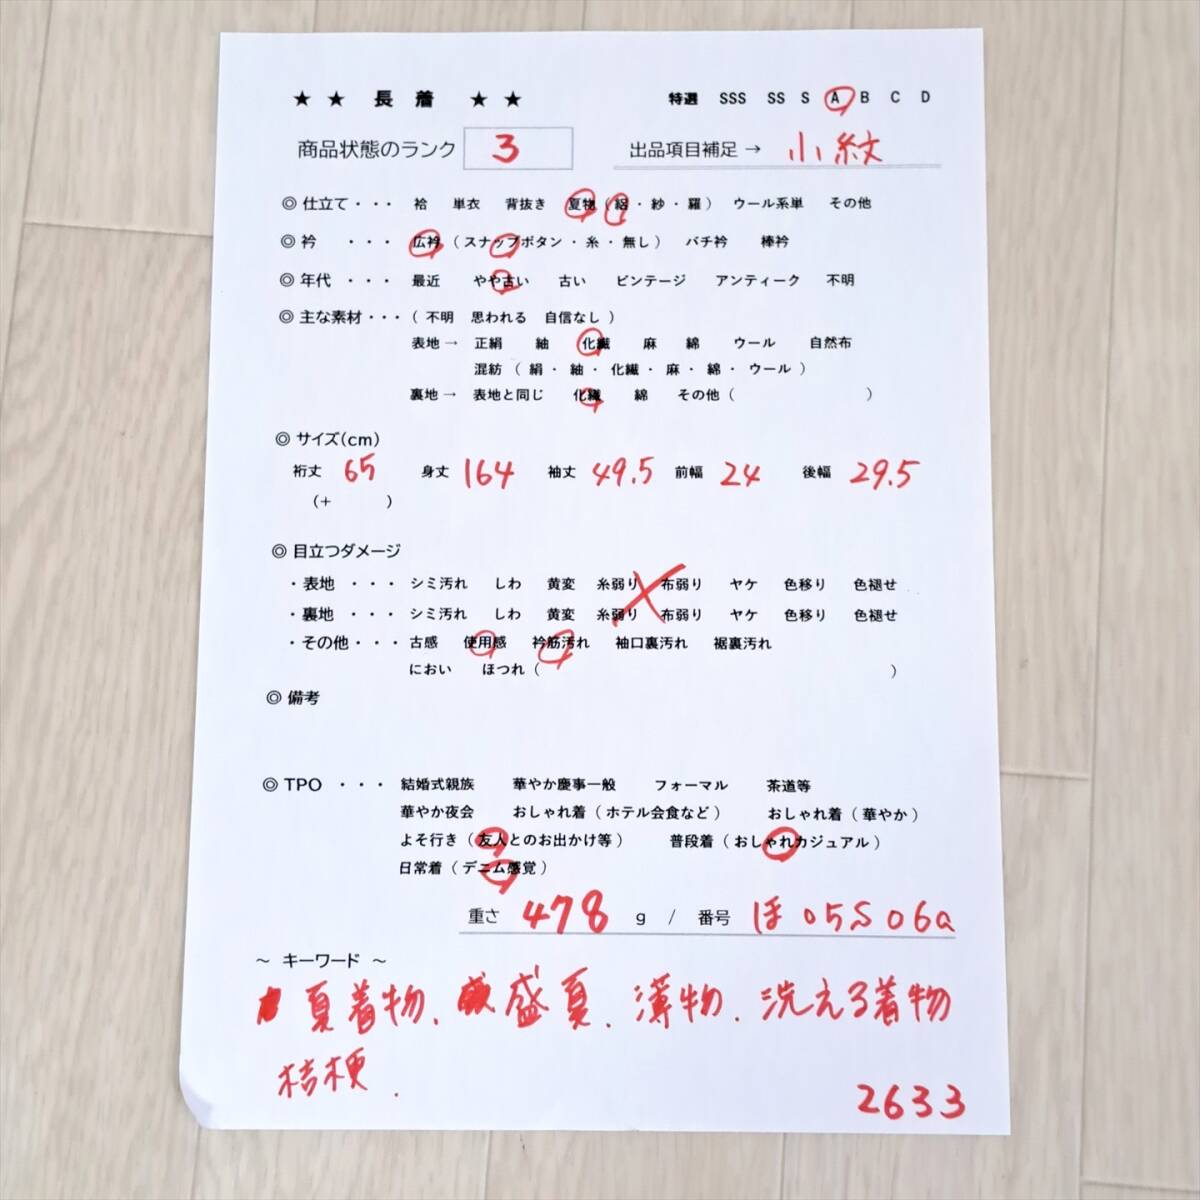 ★ ★ 長 着 ★ ★ 特選 SSS SS S A B C D
商品状態のランク 3 出品項目補足 → 小紋
◎ 仕立て・・・ 袷 単衣 背抜き 夏物（ 絽 ・ 紗 ・ 羅 ） ウール系単 その他
◎ 衿 ・・・ 広衿 （ スナップボタン ・ 糸 ・ 無し ） バチ衿 棒衿
◎ 年代 ・・・ 最近 やや古い 古い ビンテージ アンティーク 不明
◎ 主な素材・・・（ 不明 思われる 自信なし ）
表地 → 正絹 紬 化繊 麻 綿 ウール 自然布
混紡 （ 絹 ・ 紬 ・ 化繊 ・ 麻 ・ 綿 ・ ウール ）
裏地 → 表地と同じ 化繊 綿 その他（ ）
◎ サイズ(cm)
裄丈 65 身丈 164 袖丈 49.5 前幅 24 後幅 29.5
（＋ ）
◎ 目立つダメージ
・表地 ・・・ シミ汚れ しわ 黄変 糸弱り 布弱り ヤケ 色移り 色褪せ
・裏地 ・・・ シミ汚れ しわ 黄変 糸弱り 布弱り ヤケ 色移り 色褪せ
・その他・・・ 古感 使用感 衿筋汚れ 袖口裏汚れ 裾裏汚れ
におい ほつれ（ ）
◎ 備考
◎ TPO ・・・ 結婚式親族 華やか慶事一般 フォーマル 茶道等
華やか夜会 おしゃれ着（ ホテル会食など ） おしゃれ着（ 華やか ）
よそ行き（ 友人とのお出かけ等 ） 普段着（ おしゃれカジュアル ）
日常着（ デニム感覚 ）
重さ 478 g / 番号 ほ05S06a
～ キーワード ～
夏着物、盛夏、薄物、洗える着物
桔梗、
2633